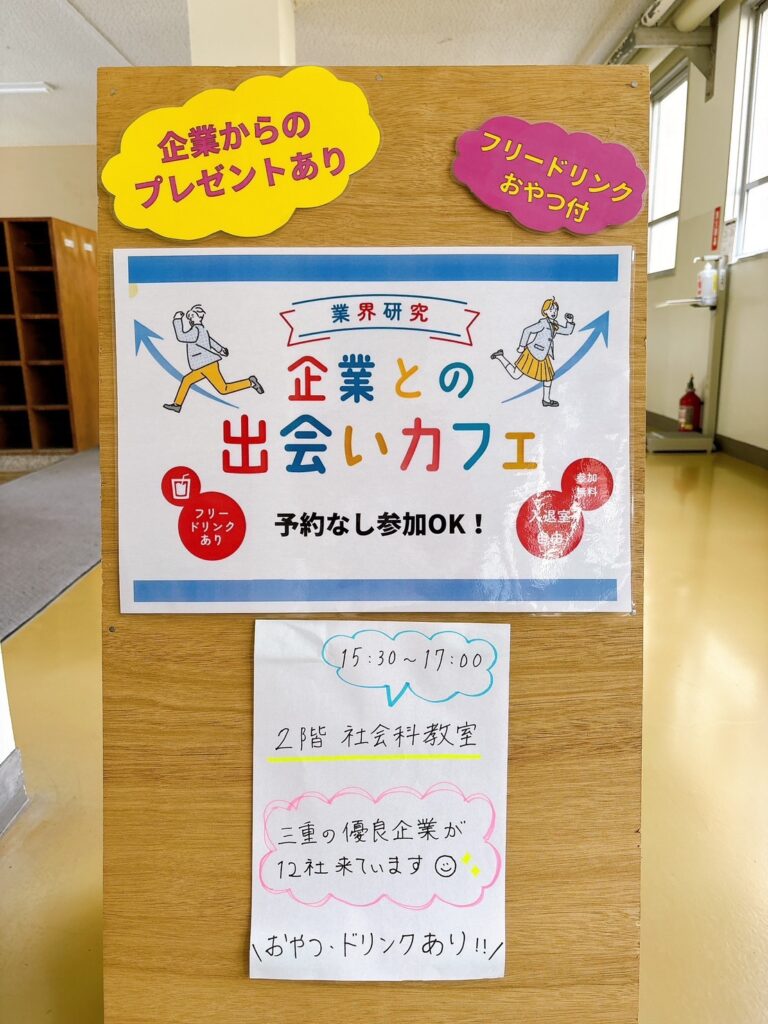 企業からの
プレゼントあり
フリードリンク
おやつ付
業界研究
企業との
出会いカフェ
フリー
ドリンク
あり
予約なし参加OK！
参加
無料
入退室
自由
15:30～17:00
2階 社会科教室
三重の優良企業が
12社来ています
\おやつ、ドリンクあり!!/